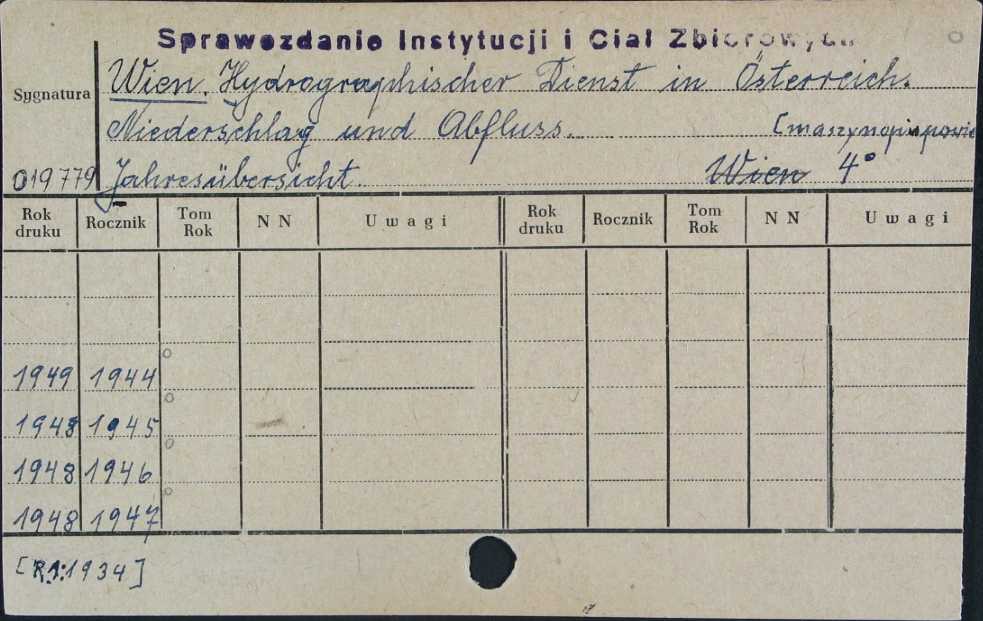 Sprawozdanie Instytucji i Ciał Zbiorowych
Sygnatura
Wien. Hydrographischer Dienst in Österreich.
Niederschlag und Abfluss. [maszynopis powie
019779 Jahresübersicht. Wien 4°
Rok druku Rocznik Tom Rok N N Uwagi Rok druku Rocznik Tom Rok N N Uwagi
1949 1944
1948 1945
1948 1946
1948 1947
[R.1:1934]